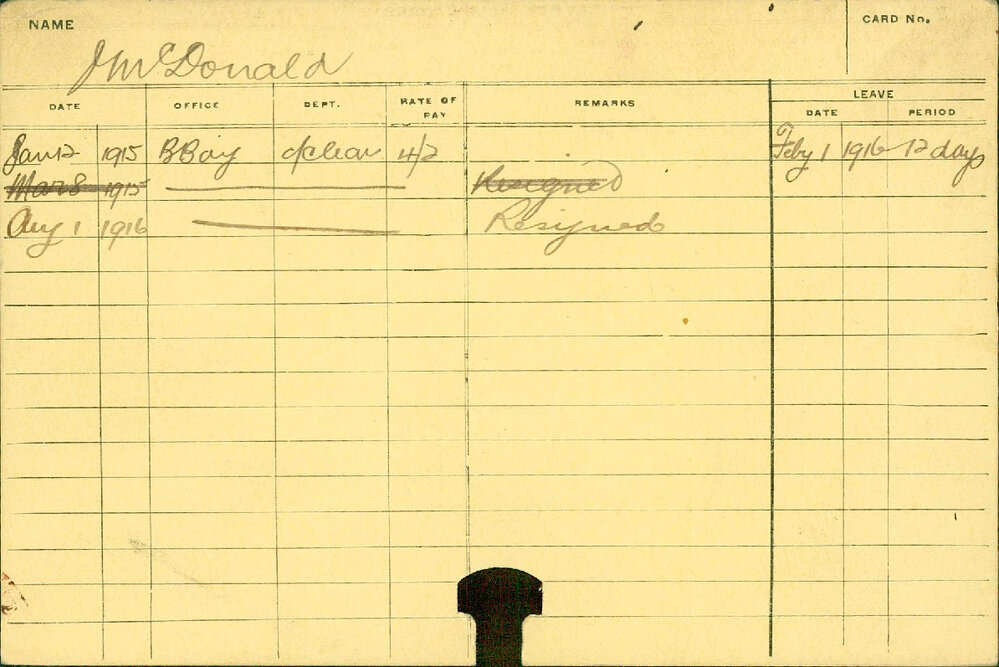 NAME
CARD No.
J McDonald
DATE OFFICE DEPT. RATE OF PAY REMARKS LEAVE
DATE PERIOD
Jan 12 1915 BBay 4/2 Feby 1 1916 12 days
Mar 8 1915 Resigned
Aug 1 1916 Resigned